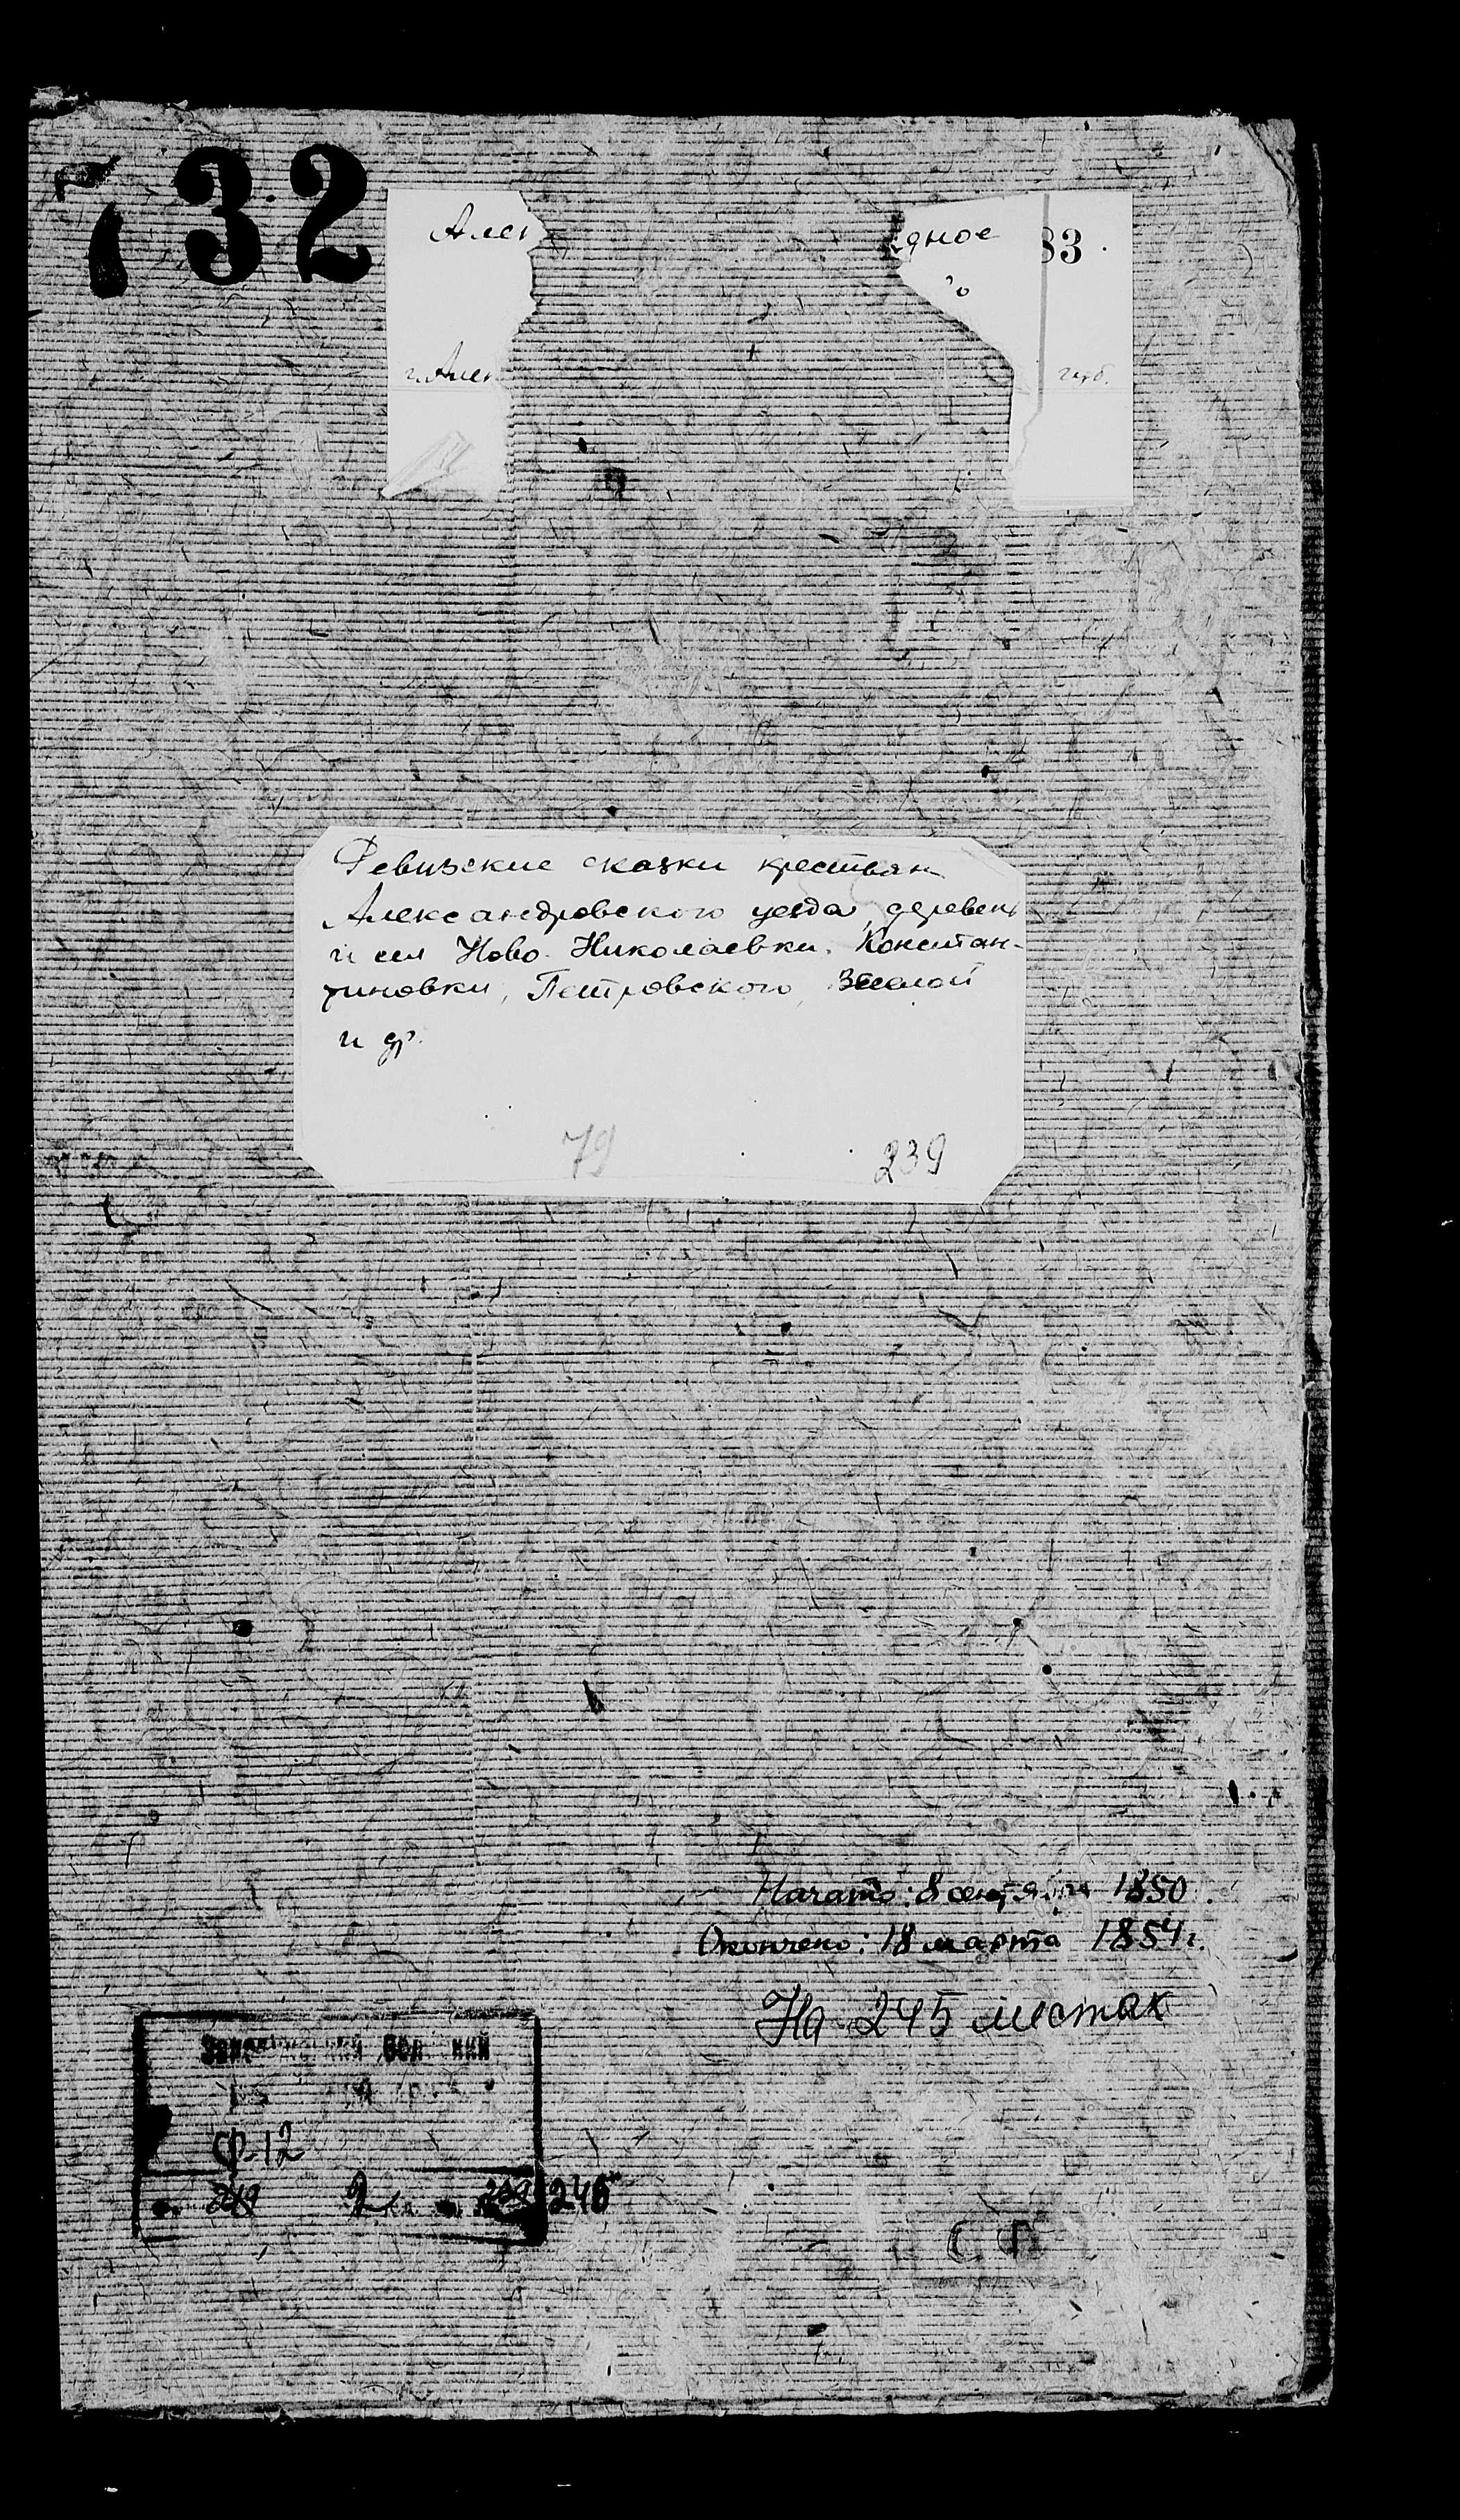 732
Алек
дное
83
г. Алек
губ.
Ревизские сказки крестьян
Александровского уезда, деревень
и сел Ново-Николаевки, Констан-
тиновки, Петровского,
и др.
79 239
Начато: 8 сентября 1850
Окончено: 18 марта 1854 г.
На 245 листах
Ф-12
2 246